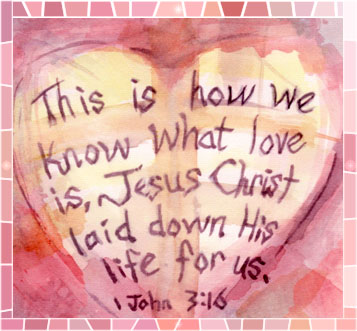 This is how we
Know What love
is, Jesus Christ
laid down His
life for us.
1 John 3:16